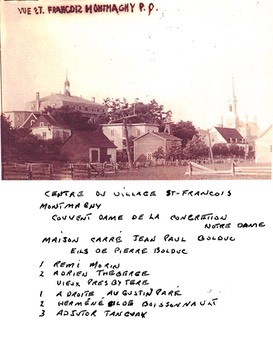 VUE ST. FRANÇOIS MONTMAGNY P.Q.
CENTRE DU VILLAGE ST-FRANCOIS
MONTMAGNY
COUVENT DAME DE LA CONGRETION
NOTRE DAME
MAISON CARRÉ JEAN PAUL BOLDUC
FILS DE PIERRE BOLDUC
1 REMI MORIN
2 ADRIEN THEBERGE
VIEUX PRESBYTERE
1 A DROITE AUGUSTIN PARÉ
2 HERMÉNÉ BOISSONNAULT
3 ADJUTOR